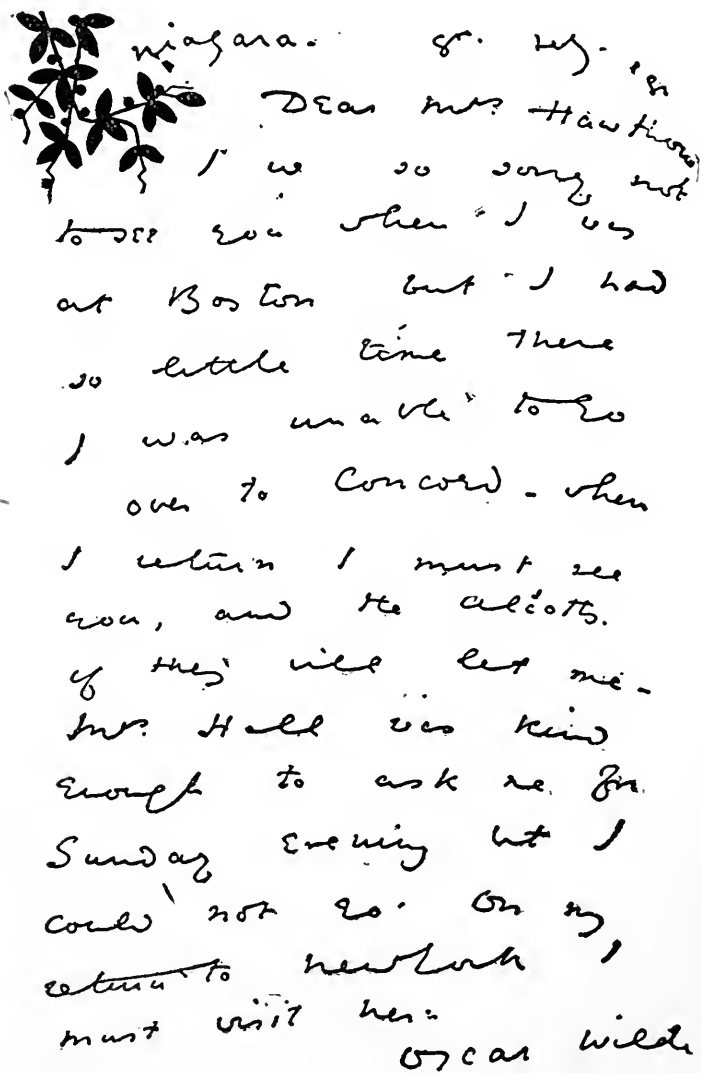 Niagara.
Dear Mrs. Hawthorne
I was so sorry not
to see you when I was
at Boston but I had
so little time there
I was unable to go
over to Concord - when
I return I must see
you, and the Alcotts.
if they will let me -
Mrs. Hall was kind
enough to ask me for
Sunday evening but I
could not go. On my
return to New York I
must visit her:
Oscar Wilde